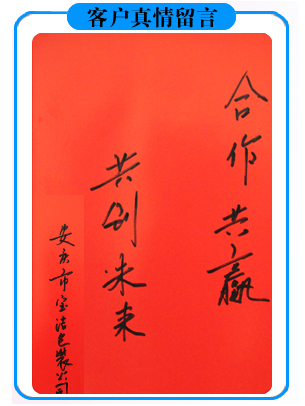 客户真情留言
合作共赢
共创未来
安庆市宝洁包装公司